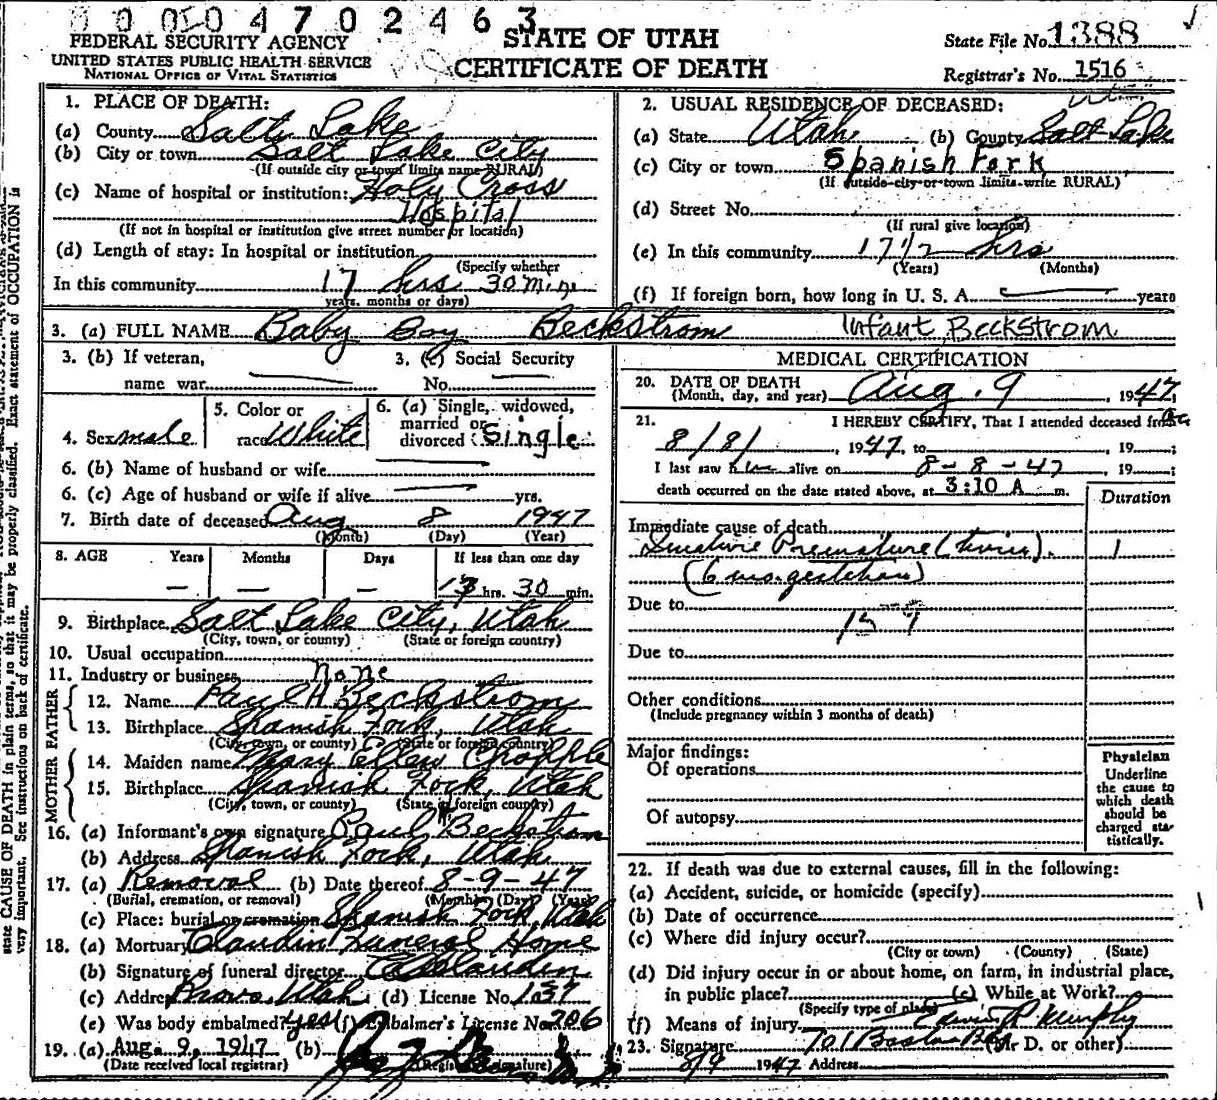 0 0 0 0 4 7 0 2 4 6 3
FEDERAL SECURITY AGENCY
UNITED STATES PUBLIC HEALTH SERVICE
NATIONAL OFFICE OF VITAL STATISTICS
STATE OF UTAH
CERTIFICATE OF DEATH
State File No. 1388
Registrar's No. 1516
state CAUSE OF DEATH in plain terms, so that it may be properly classified. Exact statement of OCCUPATION is
very important. See instructions on back of certificate.
1. PLACE OF DEATH:
(a) County Salt Lake
(b) City or town Salt Lake City
(If outside city or town limits name RURAL)
(c) Name of hospital or institution: Holy Cross
Hospital
(If not in hospital or institution give street number or location)
(d) Length of stay: In hospital or institution
(Specify whether
In this community 17 hrs 30 min
years, months or days)
2. USUAL RESIDENCE OF DECEASED:
(a) State Utah (b) County Salt Lake
Utah
(c) City or town Spanish Fork
(If outside city or town limits write RURAL)
(d) Street No.
(If rural give location)
(e) In this community 17 1/2 hrs
(Years) (Months)
(f) If foreign born, how long in U. S. A. years
3. (a) FULL NAME Baby Boy Beckstrom Infant Beckstrom
3. (b) If veteran,
name war
3. (c) Social Security
No.
4. Sex male
5. Color or
race White
6. (a) Single, widowed,
married or
divorced single
6. (b) Name of husband or wife
6. (c) Age of husband or wife if alive yrs.
7. Birth date of deceased Aug 8 1947
(Month) (Day) (Year)
8. AGE Years Months Days If less than one day
17 hrs. 30 min.
9. Birthplace Salt Lake City, Utah
(City, town, or county) (State or foreign country)
10. Usual occupation
11. Industry or business none
FATHER
12. Name Paul H Beckstrom
13. Birthplace Spanish Fork, Utah
(City, town, or county) (State or foreign country)
MOTHER
14. Maiden name Mary Ellen Chapple
15. Birthplace Spanish Fork, Utah
(City, town, or county) (State or foreign country)
16. (a) Informant's own signature Paul Beckstrom
(b) Address Spanish Fork, Utah
17. (a) Removal (b) Date thereof 8-9-47
(Burial, cremation, or removal) (Month) (Day) (Year)
(c) Place: burial or cremation Spanish Fork, Utah
18. (a) Mortuary Claudin Funeral Home
(b) Signature of funeral director Claudin
(c) Address Provo, Utah (d) License No. 137
(e) Was body embalmed? yes (f) Embalmer's License No. 206
19. (a) Aug. 9, 1947 (b)
(Date received local registrar) (Registrar's signature)
MEDICAL CERTIFICATION
20. DATE OF DEATH
(Month, day, and year) Aug. 9, 1947
21. I HEREBY CERTIFY, That I attended deceased from
8/8/, 1947, to , 19 ;
I last saw him alive on 8-8-47, 19 ;
death occurred on the date stated above, at 3:10 A m.
Duration
Immediate cause of death
Premature (twin). 1
(6 mos. gestation)
Due to
159
Due to
Other conditions
(Include pregnancy within 3 months of death)
Major findings:
Of operations
Of autopsy
Physician
Underline
the cause to
which death
should be
charged sta-
tistically.
22. If death was due to external causes, fill in the following:
(a) Accident, suicide, or homicide (specify)
(b) Date of occurrence
(c) Where did injury occur?
(City or town) (County) (State)
(d) Did injury occur in or about home, on farm, in industrial place,
in public place? (e) While at Work?
(Specify type of place)
(f) Means of injury
Edwin R. Murphy
23. Signature 701 Boston Bldg (Mr D. or other)
8/9 1947 Address